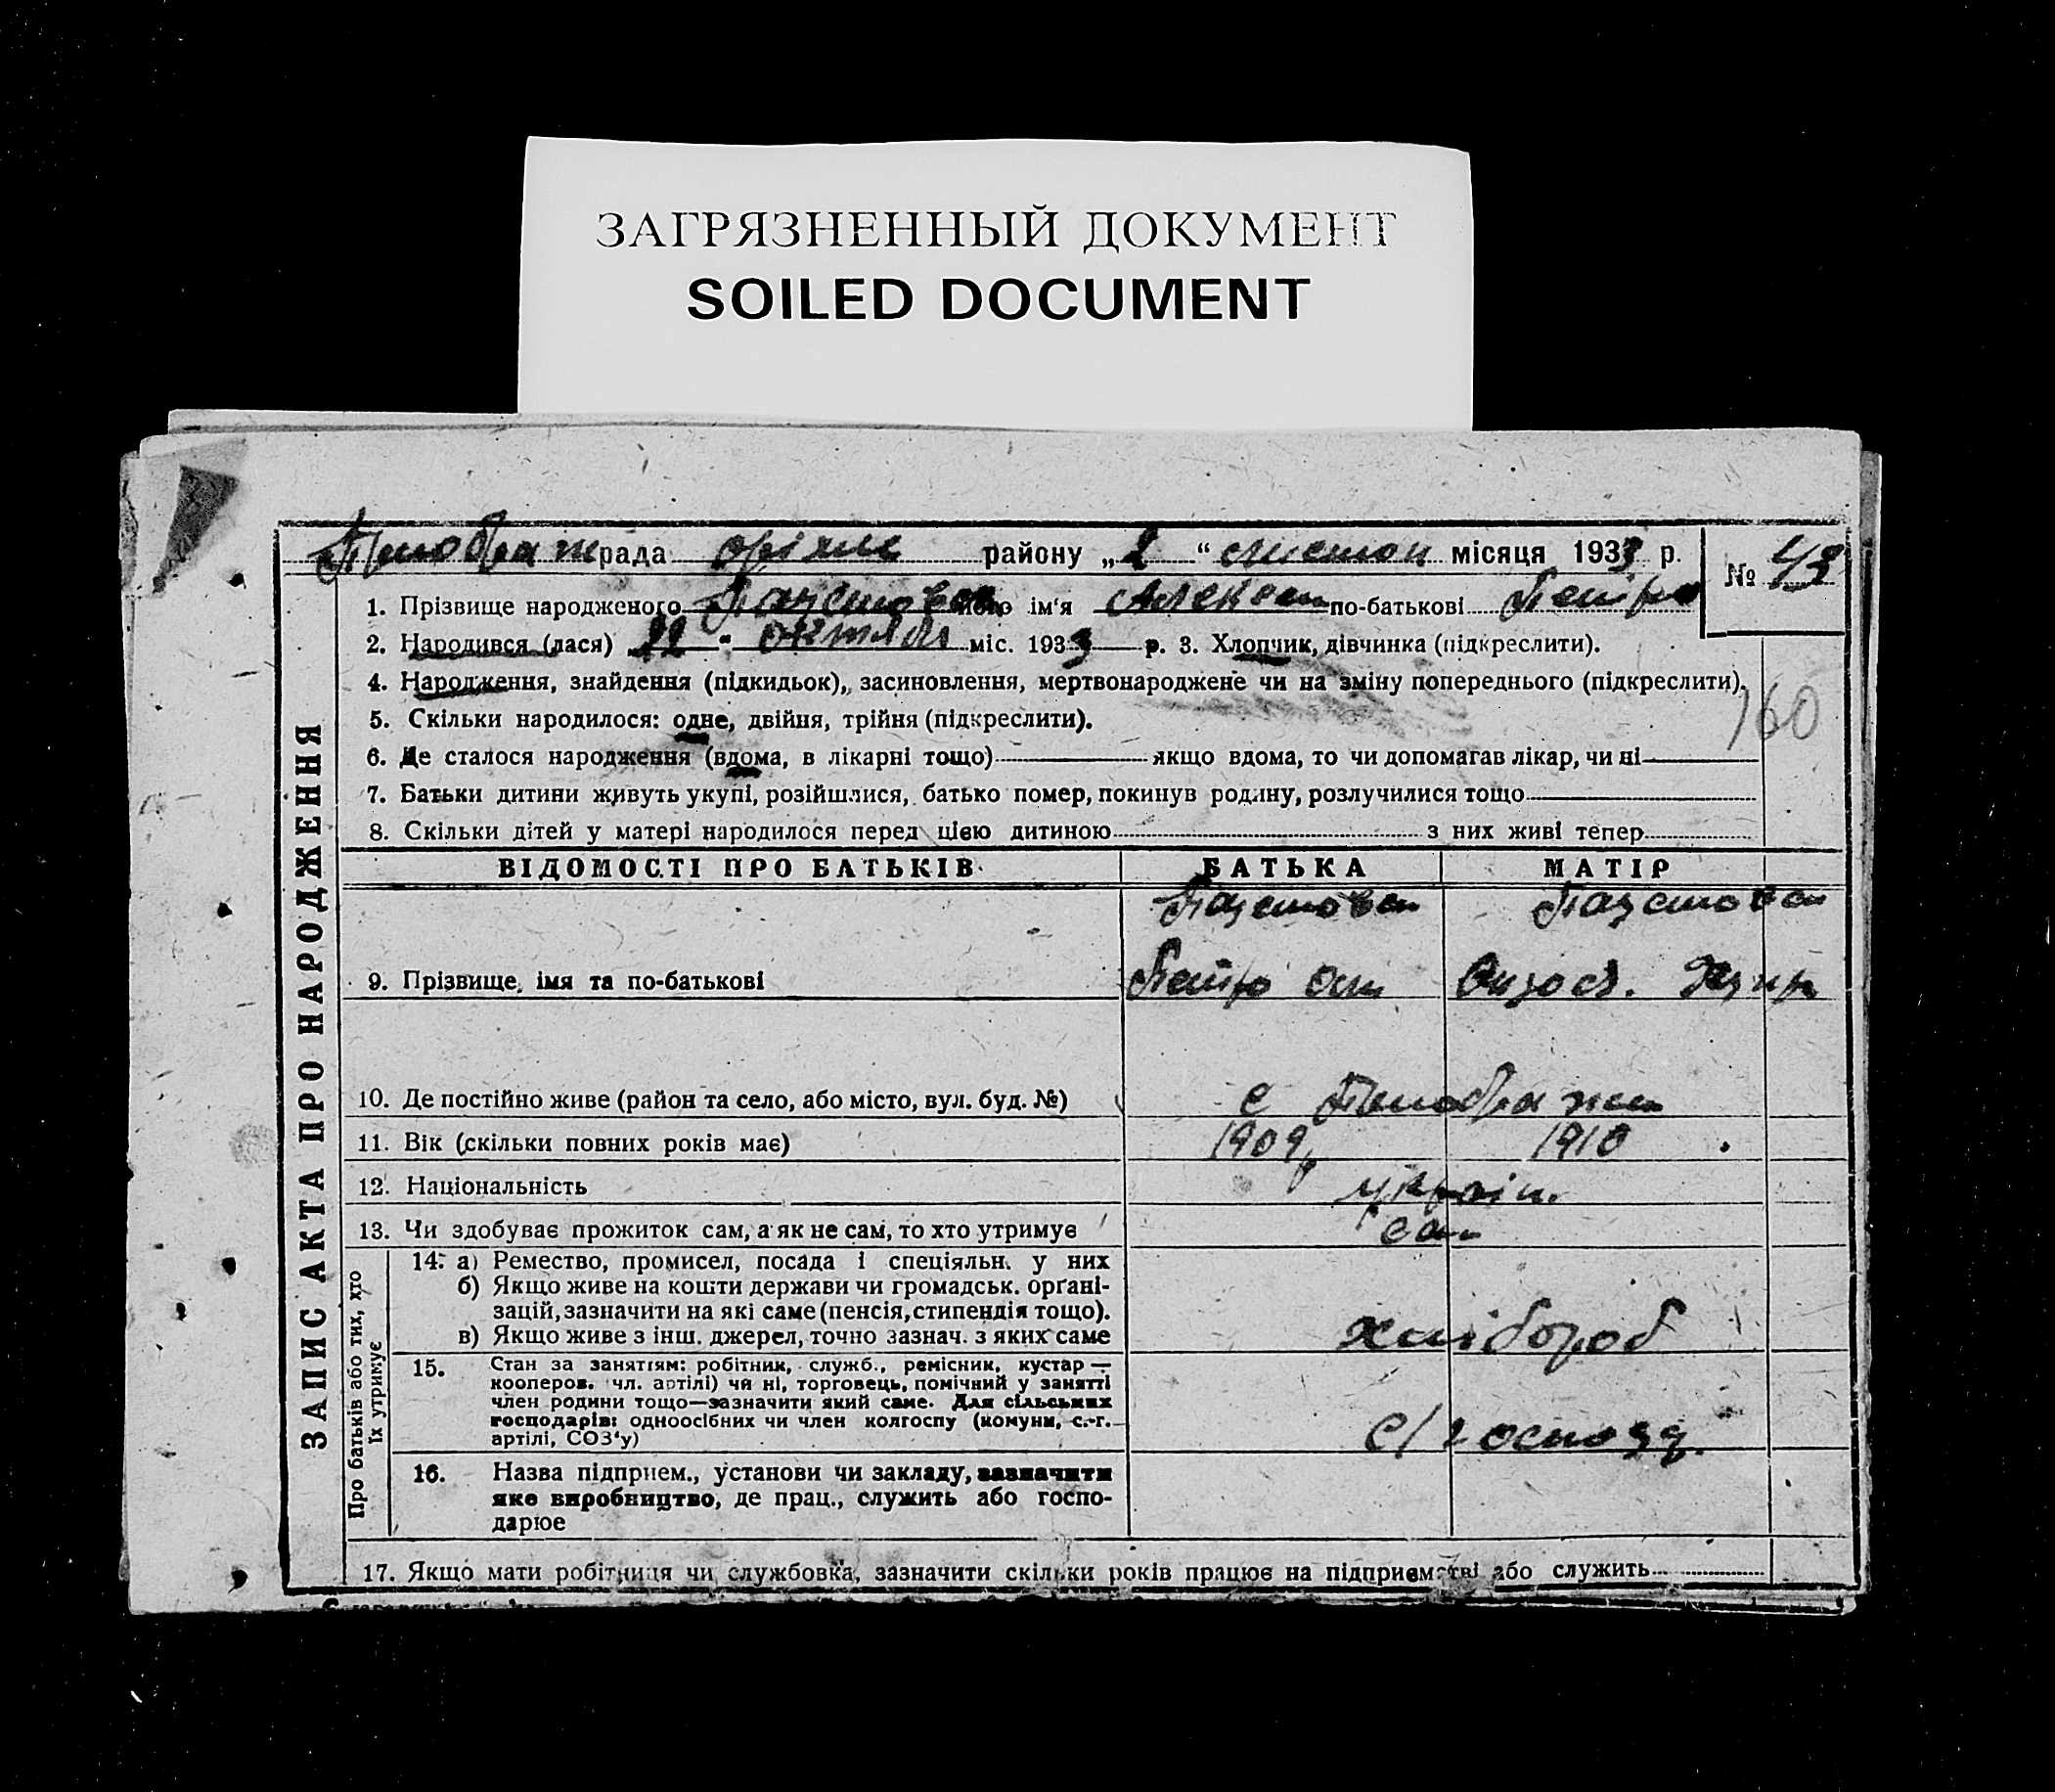 ЗАГРЯЗНЕННЫЙ ДОКУМЕНТ
SOILED DOCUMENT
рада район у „2“ листоп місяця 1933 р. № 43
1. Прізвище народженого його ім‘я по-батькові Петро
2. Народився (лася) 22 " октября міс. 1933 р. 3. Хлопчик, дівчинка (підкреслити).
4. Народження, знайдення (підкидьок), засиновлення, мертвонароджене чи на зміну попереднього (підкреслити)
160
5. Скільки народилося: одне, двійня, трійня (підкреслити).
6. Де сталося народження (вдома, в лікарні тощо) якщо вдома, то чи допомагав лікар, чи ні
7. Батьки дитини живуть укупі, розійшлися, батько помер, покинув родину, розлучилися тощо
8. Скільки дітей у матері народилося перед цією дитиною з них живі тепер
ЗАПИС АКТА ПРО НАРОДЖЕННЯ
ВІДОМОСТІ ПРО БАТЬКІВ БАТЬКА МАТІР
9. Прізвище, імя та по-батькові Петро
10. Де постійно живе (район та село, або місто, вул. буд. №) с
11. Вік (скільки повних років має) 1909 1910
12. Національність україн.
13. Чи здобуває прожиток сам, а як не сам, то хто утримує сам
Про батьків або тих, хто їх утримує
14. а) Ремество, промисел, посада і спеціяльн. у них
б) Якщо живе на кошти держави чи громадськ. орґані-
зацій, зазначити на які саме (пенсія, стипендія тощо).
в) Якщо живе з інш. джерел, точно зазнач. з яких саме хлібороб
15. Стан за заняттям: робітник, служб., ремісник, кустар —
кооперов. чл. артілі) чи ні, торговець, помічний у занятті
член родини тощо—зазначити який саме. Для сільських
господарів: одноосібних чи член колгоспу (комуни, с.-г.
артілі, СОЗ‘у)
16. Назва підприєм., установи чи закладу, зазначити
яке виробництво, де прац., служить або госпо-
дарює
17. Якщо мати робітниця чи службовка, зазначити скільки років працює на підприємстві або служить